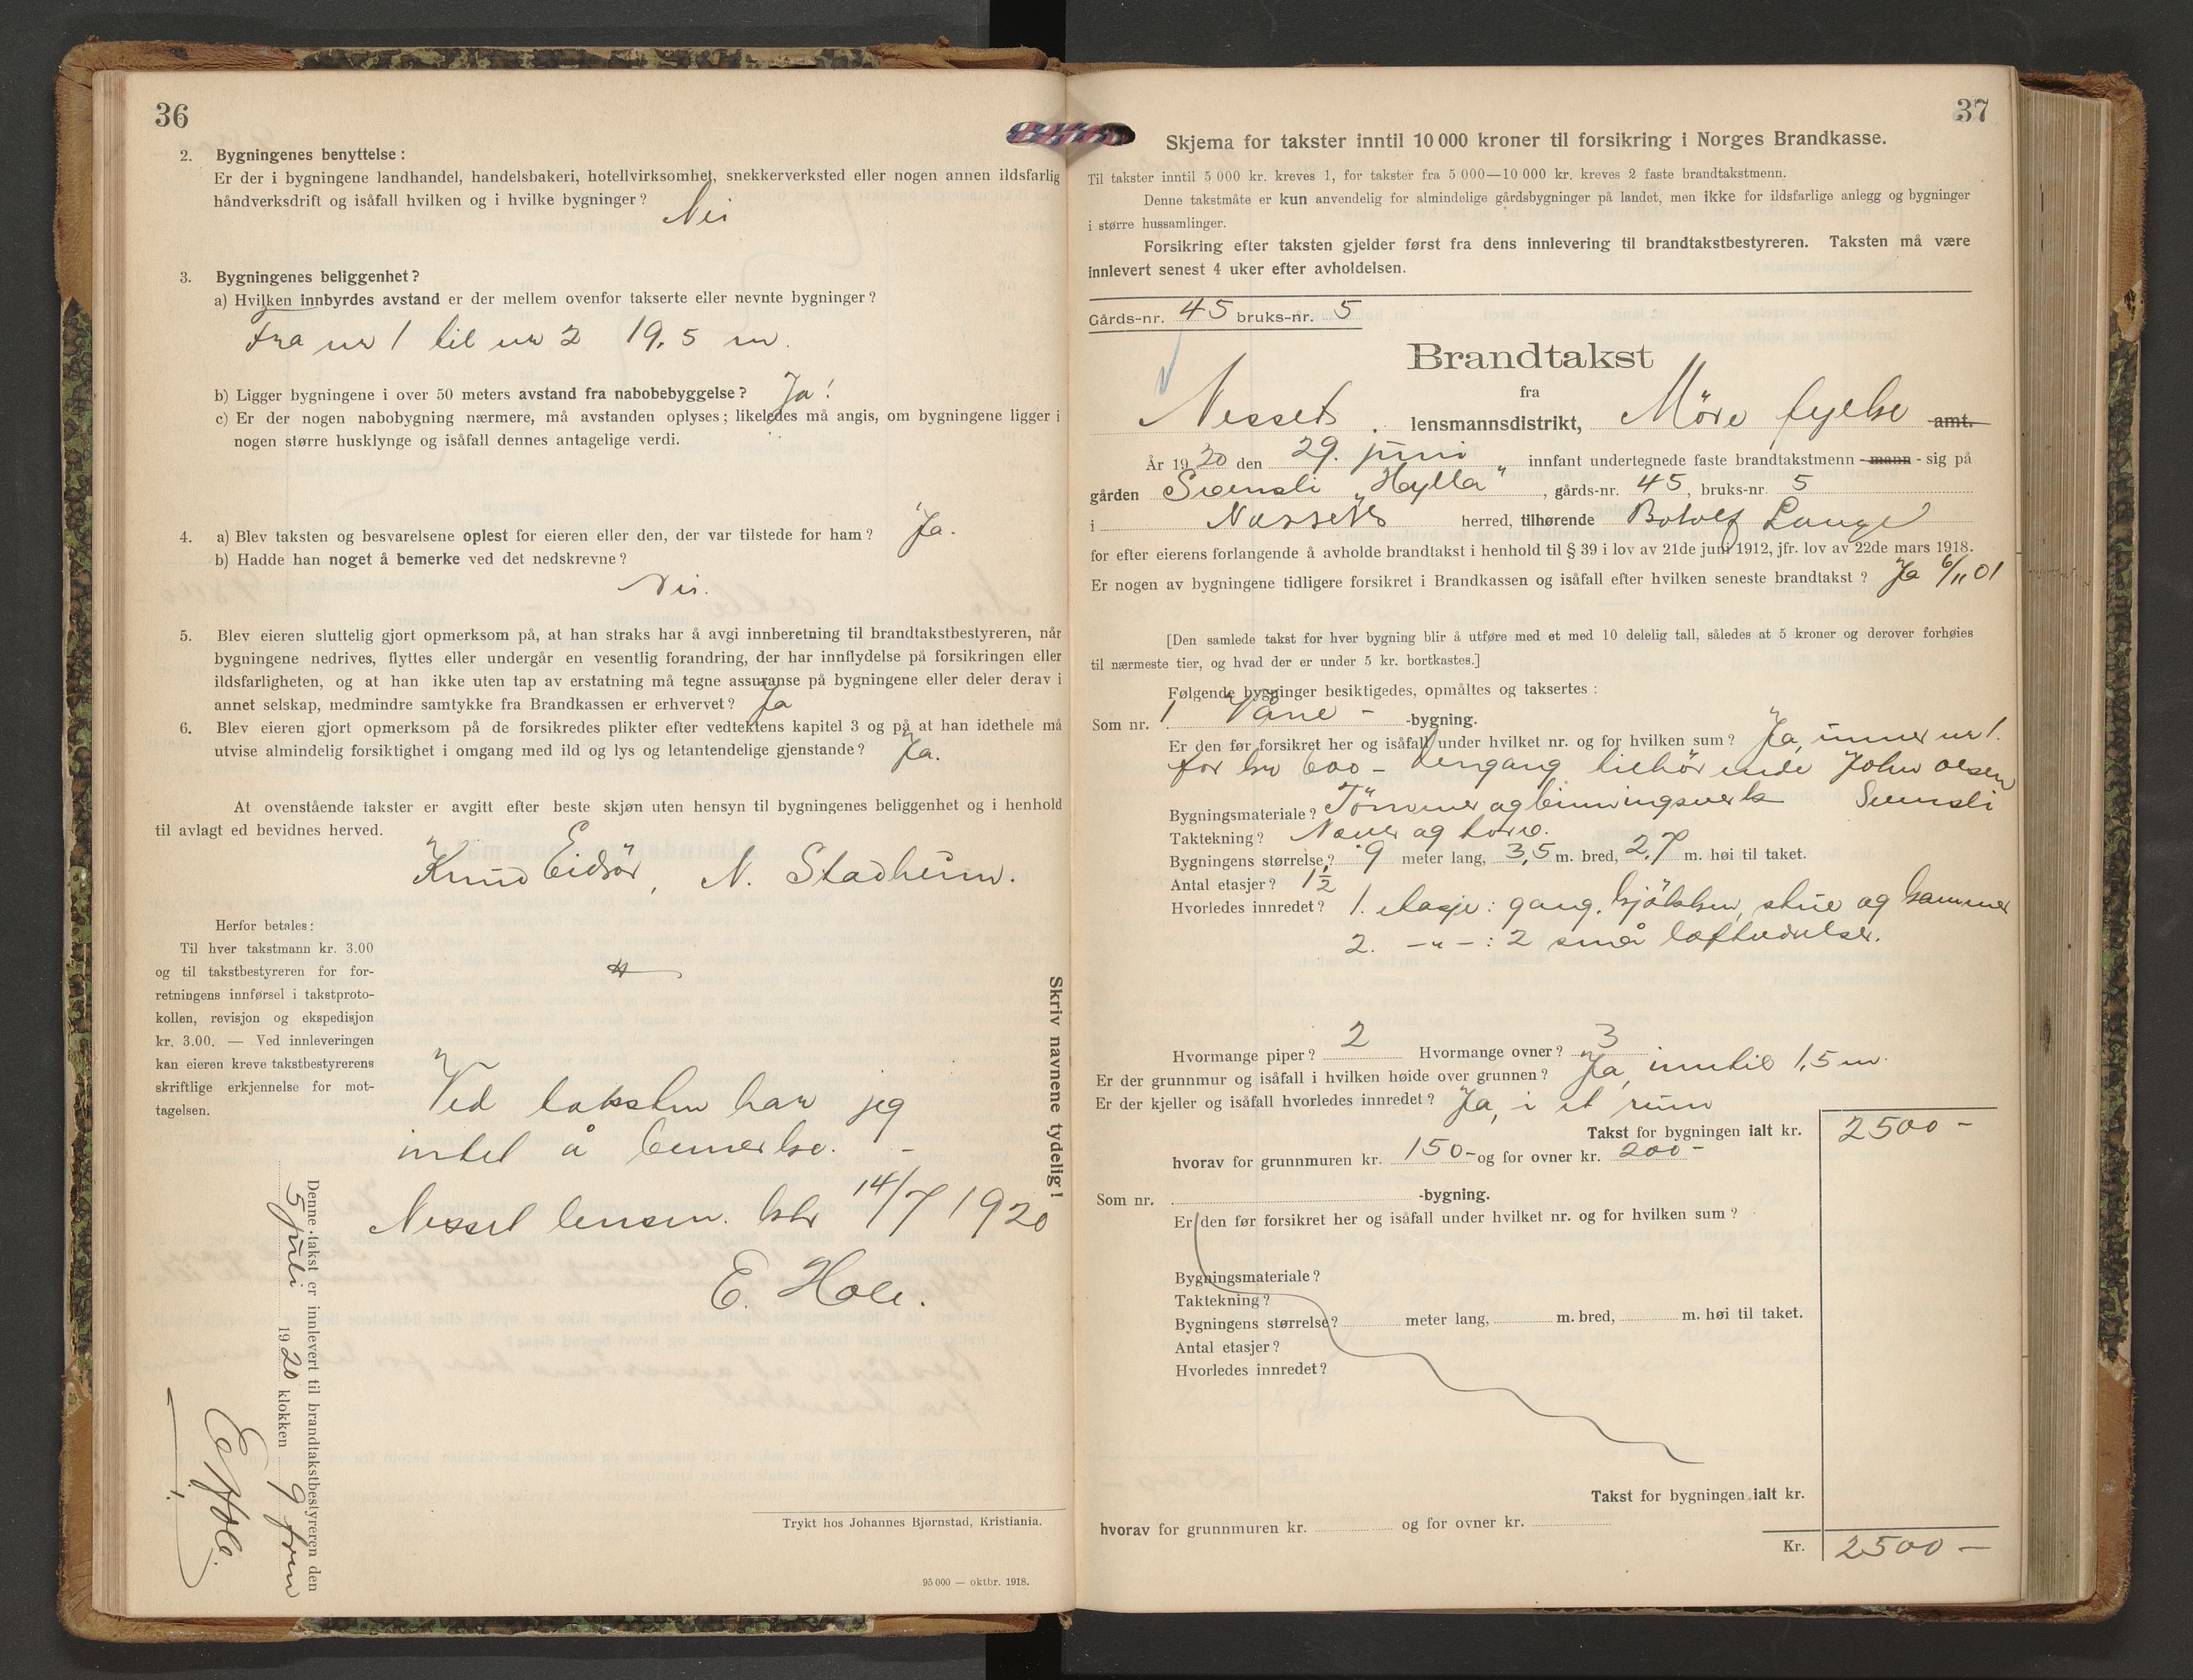 36
2. Bygningenes benyttelse:
Er der i bygningene landhandel, handelsbakeri, hotellvirksomhet, snekkerverksted eller nogen annen ildsfarlig
håndverksdrift og isåfall hvilken og i hvilke bygninger? Nei
3. Bygningenes beliggenhet?
a) Hvilken innbyrdes avstand er der mellem ovenfor takserte eller nevnte bygninger?
Fra nr 1 til nr 2 19,5 m.
b) Ligger bygningene i over 50 meters avstand fra nabobebyggelse? Ja!
c) Er der nogen nabobygning nærmere, må avstanden oplyses; likeledes må angis, om bygningene ligger i
nogen større husklynge og isåfall dennes antagelige verdi.
4. a) Blev taksten og besvarelsene oplest for eieren eller den, der var tilstede for ham? Ja.
b) Hadde han noget å bemerke ved det nedskrevne?
Nei.
5. Blev eieren sluttelig gjort opmerksom på, at han straks har å avgi innberetning til brandtakstbestyreren, når
bygningene nedrives, flyttes eller undergår en vesentlig forandring, der har innflydelse på forsikringen eller
ildsfarligheten, og at han ikke uten tap av erstatning må tegne assuranse på bygningene eller deler derav i
annet selskap, medmindre samtykke fra Brandkassen er erhvervet? Ja
6. Blev eieren gjort opmerksom på de forsikredes plikter efter vedtektens kapitel 3 og på, at han idethele må
utvise almindelig forsiktighet i omgang med ild og lys og letantendelige gjenstande? Ja.
At ovenstående takster er avgitt efter beste skjøn uten hensyn til bygningenes beliggenhet og i henhold
til avlagt ed bevidnes herved.
Knud Eidsör, N. Stadheim.
Herfor betales:
Til hver takstmann kr. 3.00
og til takstbestyreren for for-
retningens innførsel i takstproto-
kollen, revisjon og ekspedisjon
kr. 3.00. — Ved innleveringen
kan eieren kreve takstbestyrerens
skriftlige erkjennelse for mot-
tagelsen.
Ved taksten har jeg
intet å bemerke. -
Nesset lensm. ktr 14/7 1920
E. Hole.
Skriv navnene tydelig!
Denne takst er innlevert til brandtakstbestyreren den
5 juli 1920 klokken 9 fm
E Hole.
Trykt hos Johannes Bjørnstad, Kristiania.
95 000 — oktbr. 1918.
37
Skjema for takster inntil 10 000 kroner til forsikring i Norges Brandkasse.
Til takster inntil 5 000 kr. kreves 1, for takster fra 5 000—10 000 kr. kreves 2 faste brandtakstmenn.
Denne takstmåte er kun anvendelig for almindelige gårdsbygninger på landet, men ikke for ildsfarlige anlegg og bygninger
i større hussamlinger.
Forsikring efter taksten gjelder først fra dens innlevering til brandtakstbestyreren. Taksten må være
innlevert senest 4 uker efter avholdelsen.
Gårds-nr. 45 bruks-nr. 5
Brandtakst
fra
Nessets lensmannsdistrikt, Möre fylke amt.
År 1920 den 29. juni innfant undertegnede faste brandtakstmenn - mann - sig på
gården Svensli "Hylla", gårds-nr. 45, bruks-nr. 5
i Nessets herred, tilhørende Botolf Lange
for efter eierens forlangende å avholde brandtakst i henhold til § 39 i lov av 21de juni 1912, jfr. lov av 22de mars 1918.
Er nogen av bygningene tidligere forsikret i Brandkassen og isåfall efter hvilken seneste brandtakst? Ja 6/11 01
[Den samlede takst for hver bygning blir å utføre med et med 10 delelig tall, således at 5 kroner og derover forhøies
til nærmeste tier, og hvad der er under 5 kr. bortkastes.]
Følgende bygninger besiktigedes, opmåltes og taksertes:
Som nr. 1 Våne - -bygning.
Er den før forsikret her og isåfall under hvilket nr. og for hvilken sum? Ja, under nr 1.
for kr 600 - dengang tilhörende John Olsen
Svensli
Bygningsmateriale? Tömmer og binningsverk
Taktekning? Never og torv.
Bygningens størrelse? 9 meter lang, 3,5 m. bred, 2,7 m. høi til taket.
Antal etasjer? 1½
Hvorledes innredet? 1. etasje: gang, kjökken, stue og kammer
2. -"-: 2 små loftværelser.
Hvormange piper? 2 Hvormange ovner? 3
Er der grunnmur og isåfall i hvilken høide over grunnen? Ja, inntil 1,5 m.
Er der kjeller og isåfall hvorledes innredet? Ja, i et rum
Takst for bygningen ialt kr. 2500 -
hvorav for grunnmuren kr. 150- og for ovner kr. 200 -
Som nr. -bygning.
Er den før forsikret her og isåfall under hvilket nr. og for hvilken sum?
Bygningsmateriale?
Taktekning?
Bygningens størrelse? meter lang, m. bred, m. høi til taket.
Antal etasjer?
Hvorledes innredet?
Takst for bygningen ialt kr.
hvorav for grunnmuren kr. og for ovner kr.
Kr. 2500 -